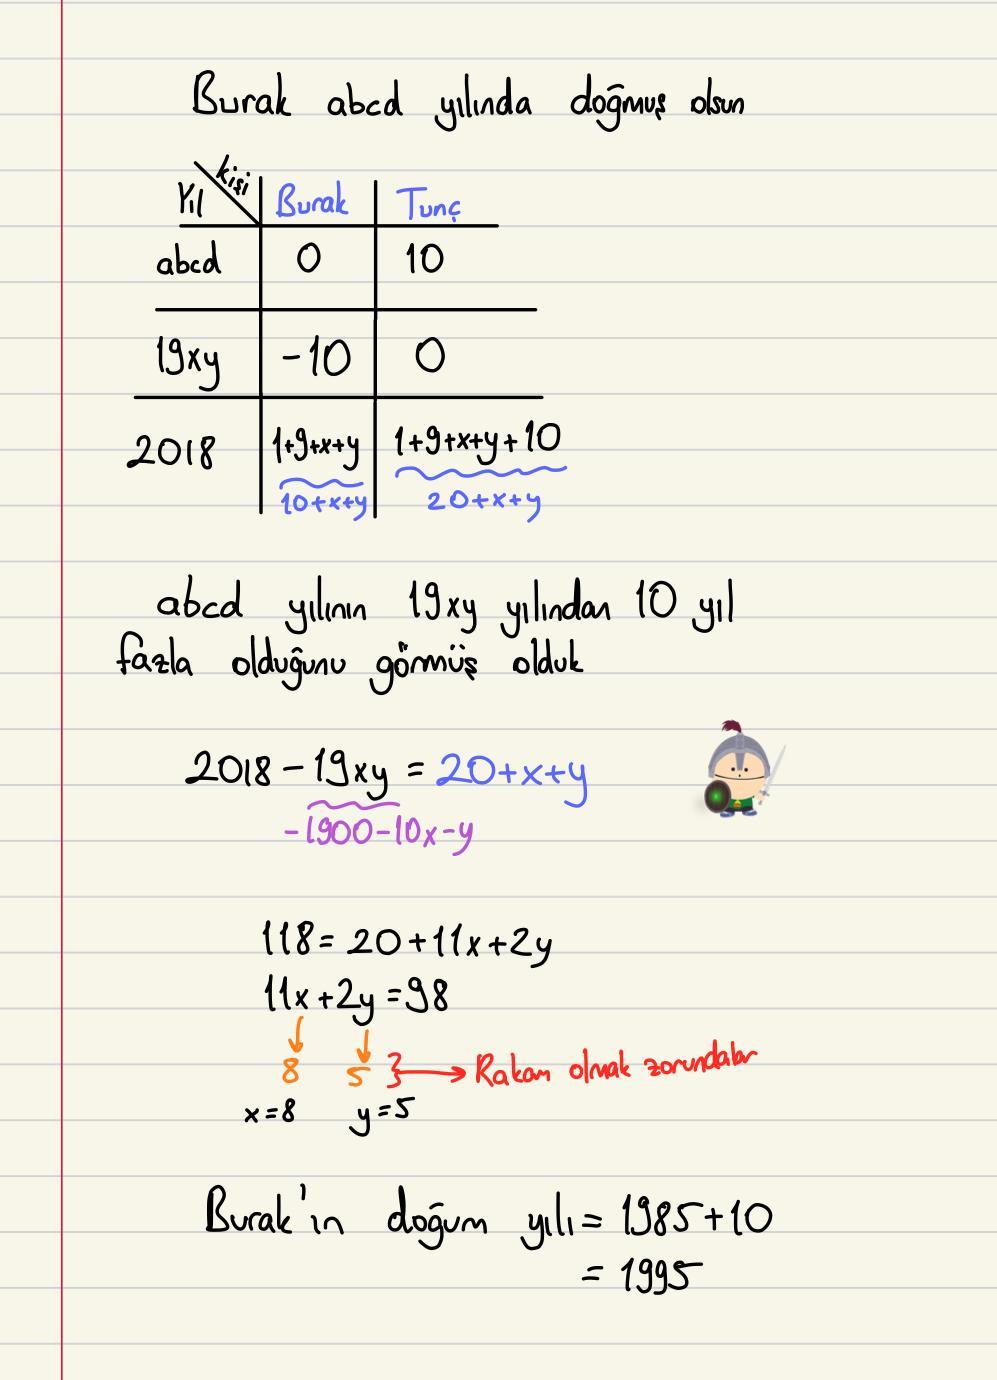 Burak abcd yılında doğmuş olsun
Yıl kişi Burak Tunç
abcd 0 10
19xy -10 0
2018 1+9+x+y 1+9+x+y+10
10+x+y 20+x+y
abcd yılının 19xy yılından 10 yıl
fazla olduğunu görmüş olduk
2018 - 19xy = 20+x+y
-1900-10x-y
118 = 20+11x+2y
11x+2y=98
8 5 } → Rakam olmak zorundalar
x=8 y=5
Burak'ın doğum yılı = 1985+10
= 1995